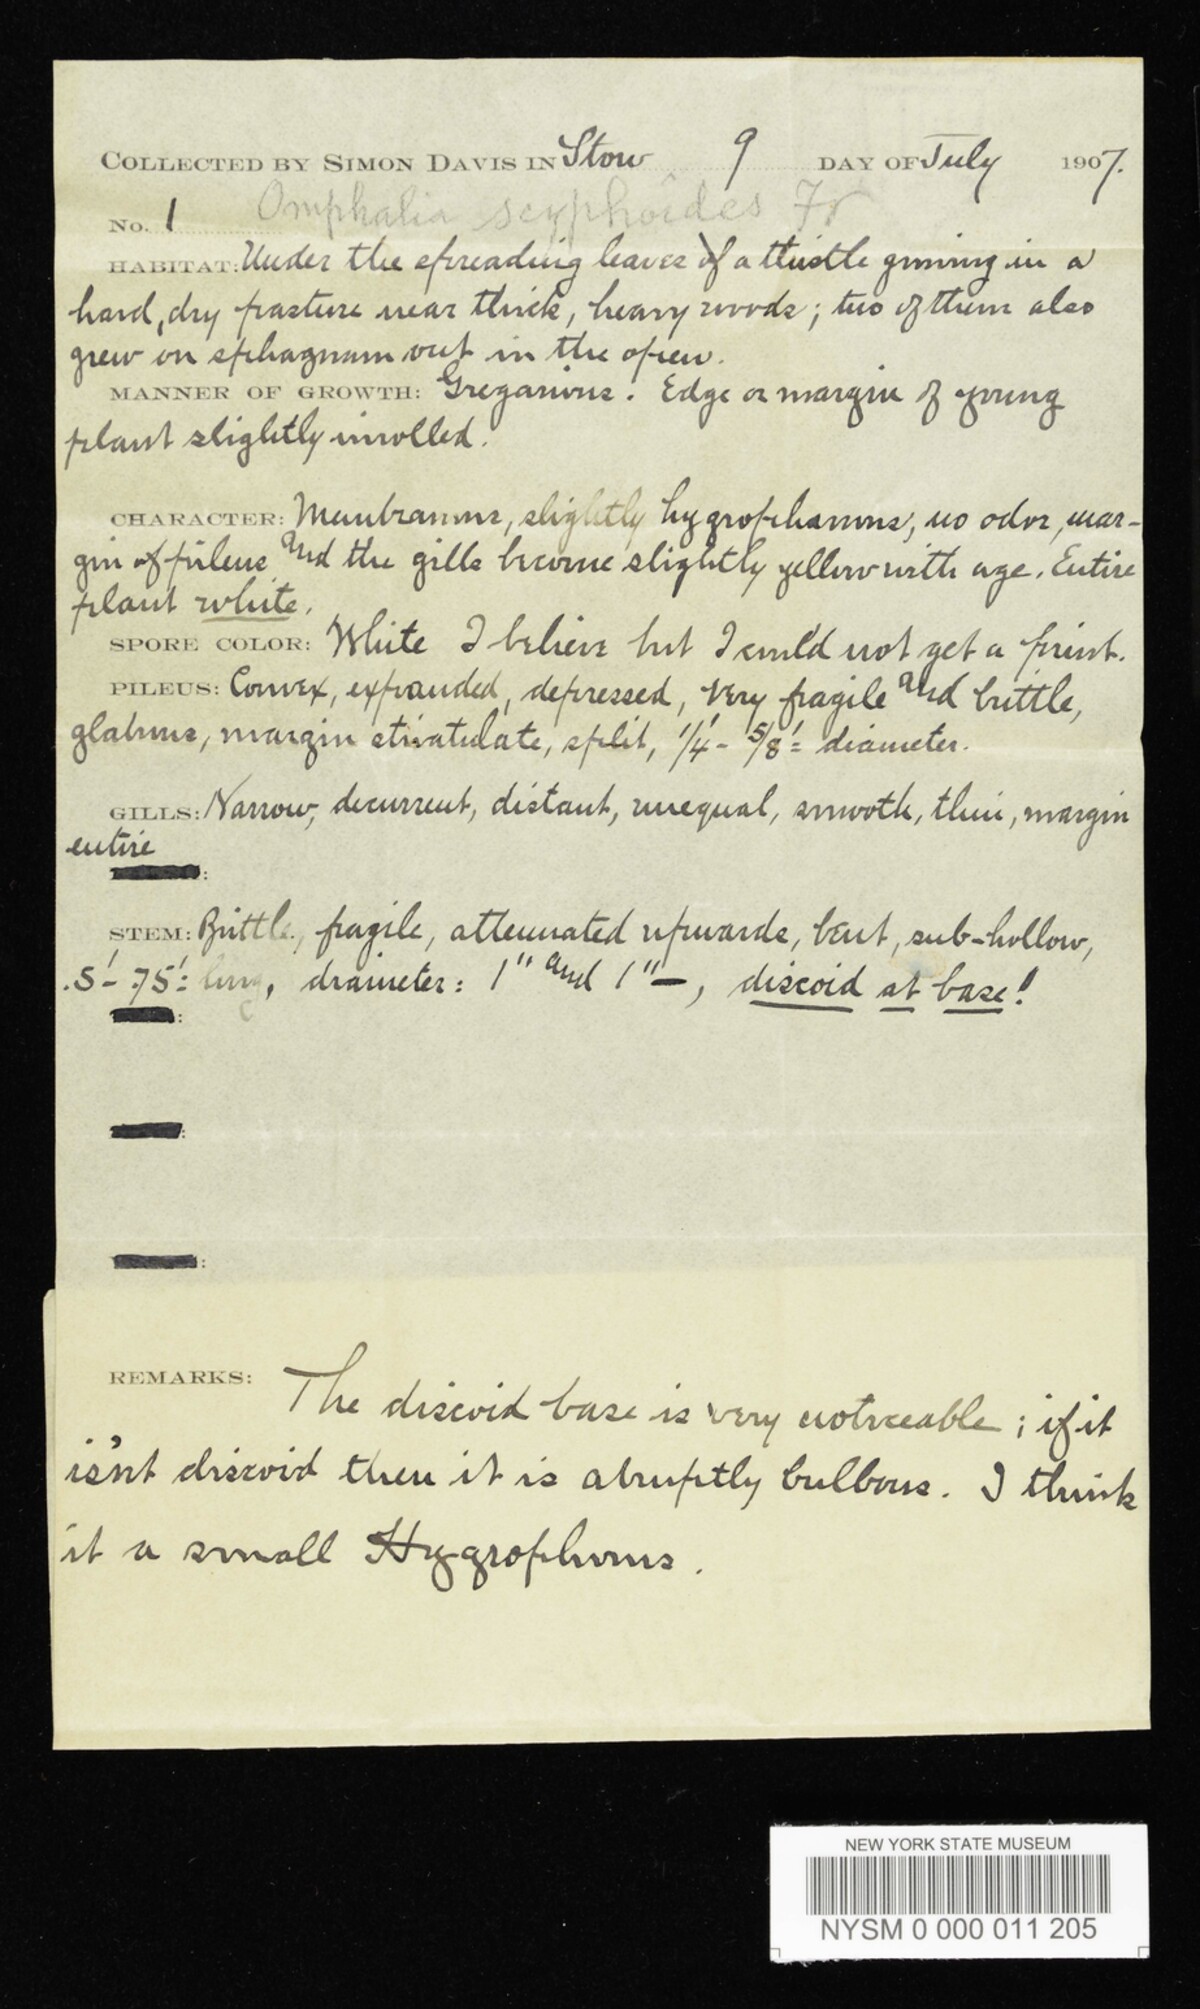 COLLECTED BY SIMON DAVIS IN Stow 9 DAY OF July 1907.
No. 1 Omphalia scyphoides Fr
HABITAT: Under the spreading leaves of a thistle growing in a
hard, dry pasture near thick, heavy woods; two of them also
grew on sphagnum out in the open.
MANNER OF GROWTH: Gregarious. Edge or margin of young
plant slightly inrolled.
CHARACTER: Membranous, slightly hygrophanous, no odor, mar-
gin of pileus and the gills become slightly yellow with age. Entire
plant white.
SPORE COLOR: White I believe but I could not get a print.
PILEUS: Convex, expanded, depressed, very fragile and brittle,
glabrous, margin striatulate, split, 1/4'- 5/8'= diameter.
GILLS: Narrow, decurrent, distant, unequal, smooth, thin, margin
entire
:
STEM: Brittle, fragile, attenuated upwards, bent, sub-hollow,
.5'- .75'= long, diameter: 1" and 1"–, discoid at base!
:
:
:
REMARKS: The discoid base is very noticeable; if it
is'nt discoid then it is abruptly bulbous. I think
it a small Hygrophorus.
NEW YORK STATE MUSEUM
NYSM 0 000 011 205